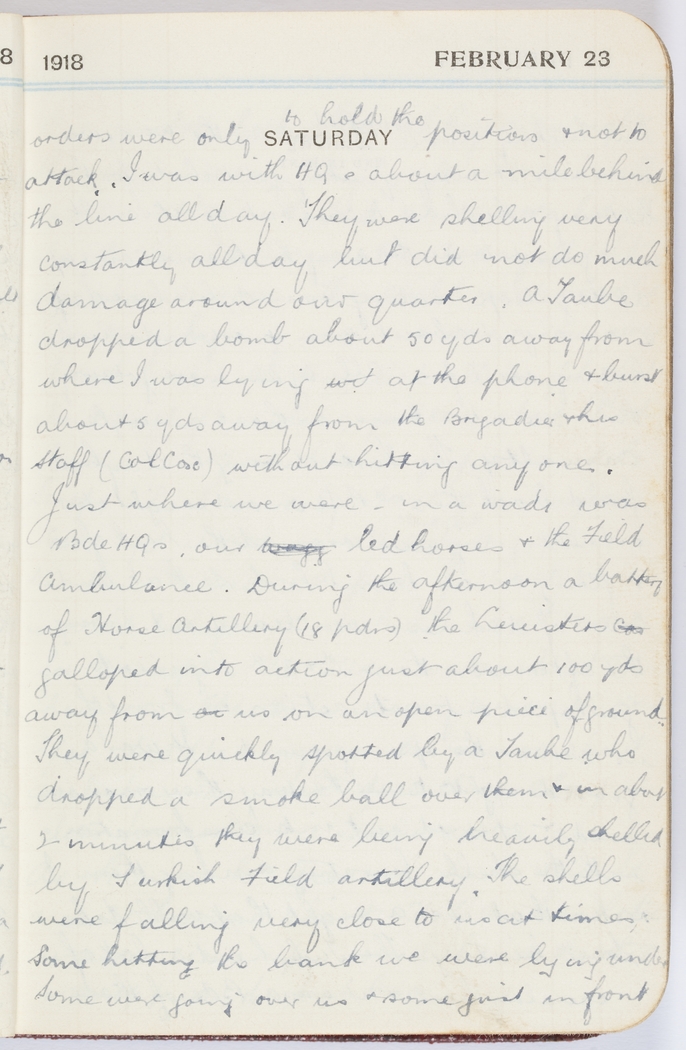 8 1918 FEBRUARY 23
to hold the
orders were only SATURDAY positions & not to
attack. I was with HQs about a mile behind
the line all day. They were shelling very
constantly all day but did not do much
damage around our quarter. A Taube
dropped a bomb about 50 yds away from
where I was lying at the phone & burst
about 5 yds away from the Brigadier & his
staff (Col Cox) without hitting anyone.
Just where we were - in a wadi was
Bde HQs, our led horses & the Field
Ambulance. During the afternoon a battery
of Horse Artillery (18 pdrs) the Leicisters
galloped into action just about 100 yds
away from or us on an open piece of ground.
They were quickly spotted by a Taube who
dropped a smoke ball over them & in about
2 minutes they were being heavily shelled
by Turkish Field artillery. The shells
were falling very close to us at times.
Some hitting the bank we were lying under
some were going over us & some just in front